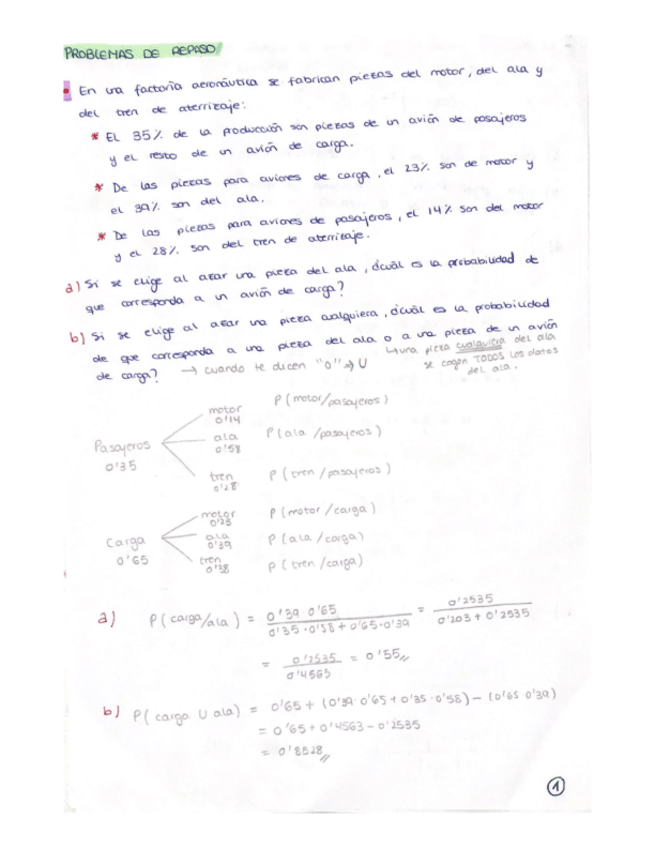 PROBLEMAS DE REPASO
En una factoría aeronáutica se fabrican piezas del motor, del ala y
del tren de aterrizaje:
* El 35% de la producción son piezas de un avión de pasajeros
y el resto de un avión de carga.
* De las piezas para aviones de carga, el 23% son de motor y
el 39% son del ala.
* De las piezas para aviones de pasajeros, el 14% son del motor
y el 28% son del tren de aterrizaje.
a) Si se elige al azar una pieza del ala, ¿cuál es la probabilidad de
que corresponda a un avión de carga?
b) Si se elige al azar una pieza cualquiera, ¿cuál es la probabilidad
de que corresponda a una pieza del ala o a una pieza de un avión
de carga? → cuando te dicen "o" → U
↳ una pieza cualquiera del ala
se cogen TODOS los datos
del ala.
Pasajeros
0'35
motor P(motor/pasajeros)
0'14
ala P(ala/pasajeros)
0'58
tren P(tren/pasajeros)
0'28
Carga
0'65
motor P(motor/carga)
0'23
ala P(ala/carga)
0'39
tren P(tren/carga)
0'38
a) P(carga/ala) = 0'39·0'65 / 0'35·0'58 + 0'65·0'39 = 0'2535 / 0'203 + 0'2535
= 0'2535 / 0'4565 = 0'55
b) P(carga U ala) = 0'65 + (0'39·0'65 + 0'35·0'58) - (0'65·0'39)
= 0'65 + 0'4563 - 0'2535
= 0'8528
1